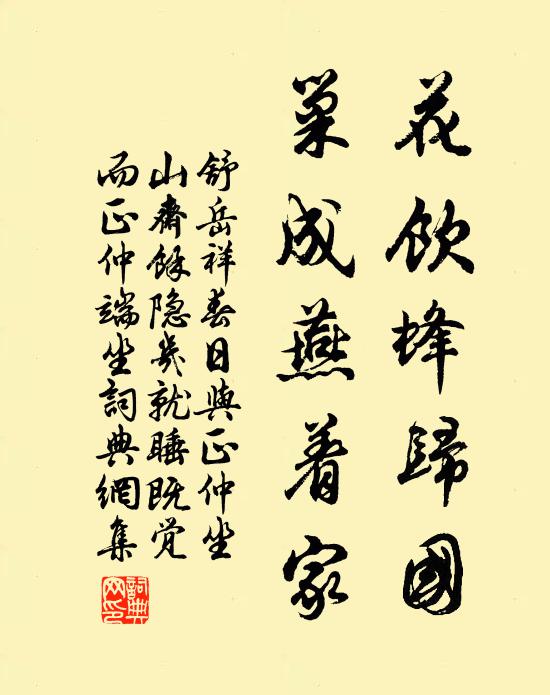 花饮蜂歸國
巢成燕着家
舒岳祥春日與正仲坐
山齋餘隐几就睡既觉
而正仲端坐詞典網集
詞典网印